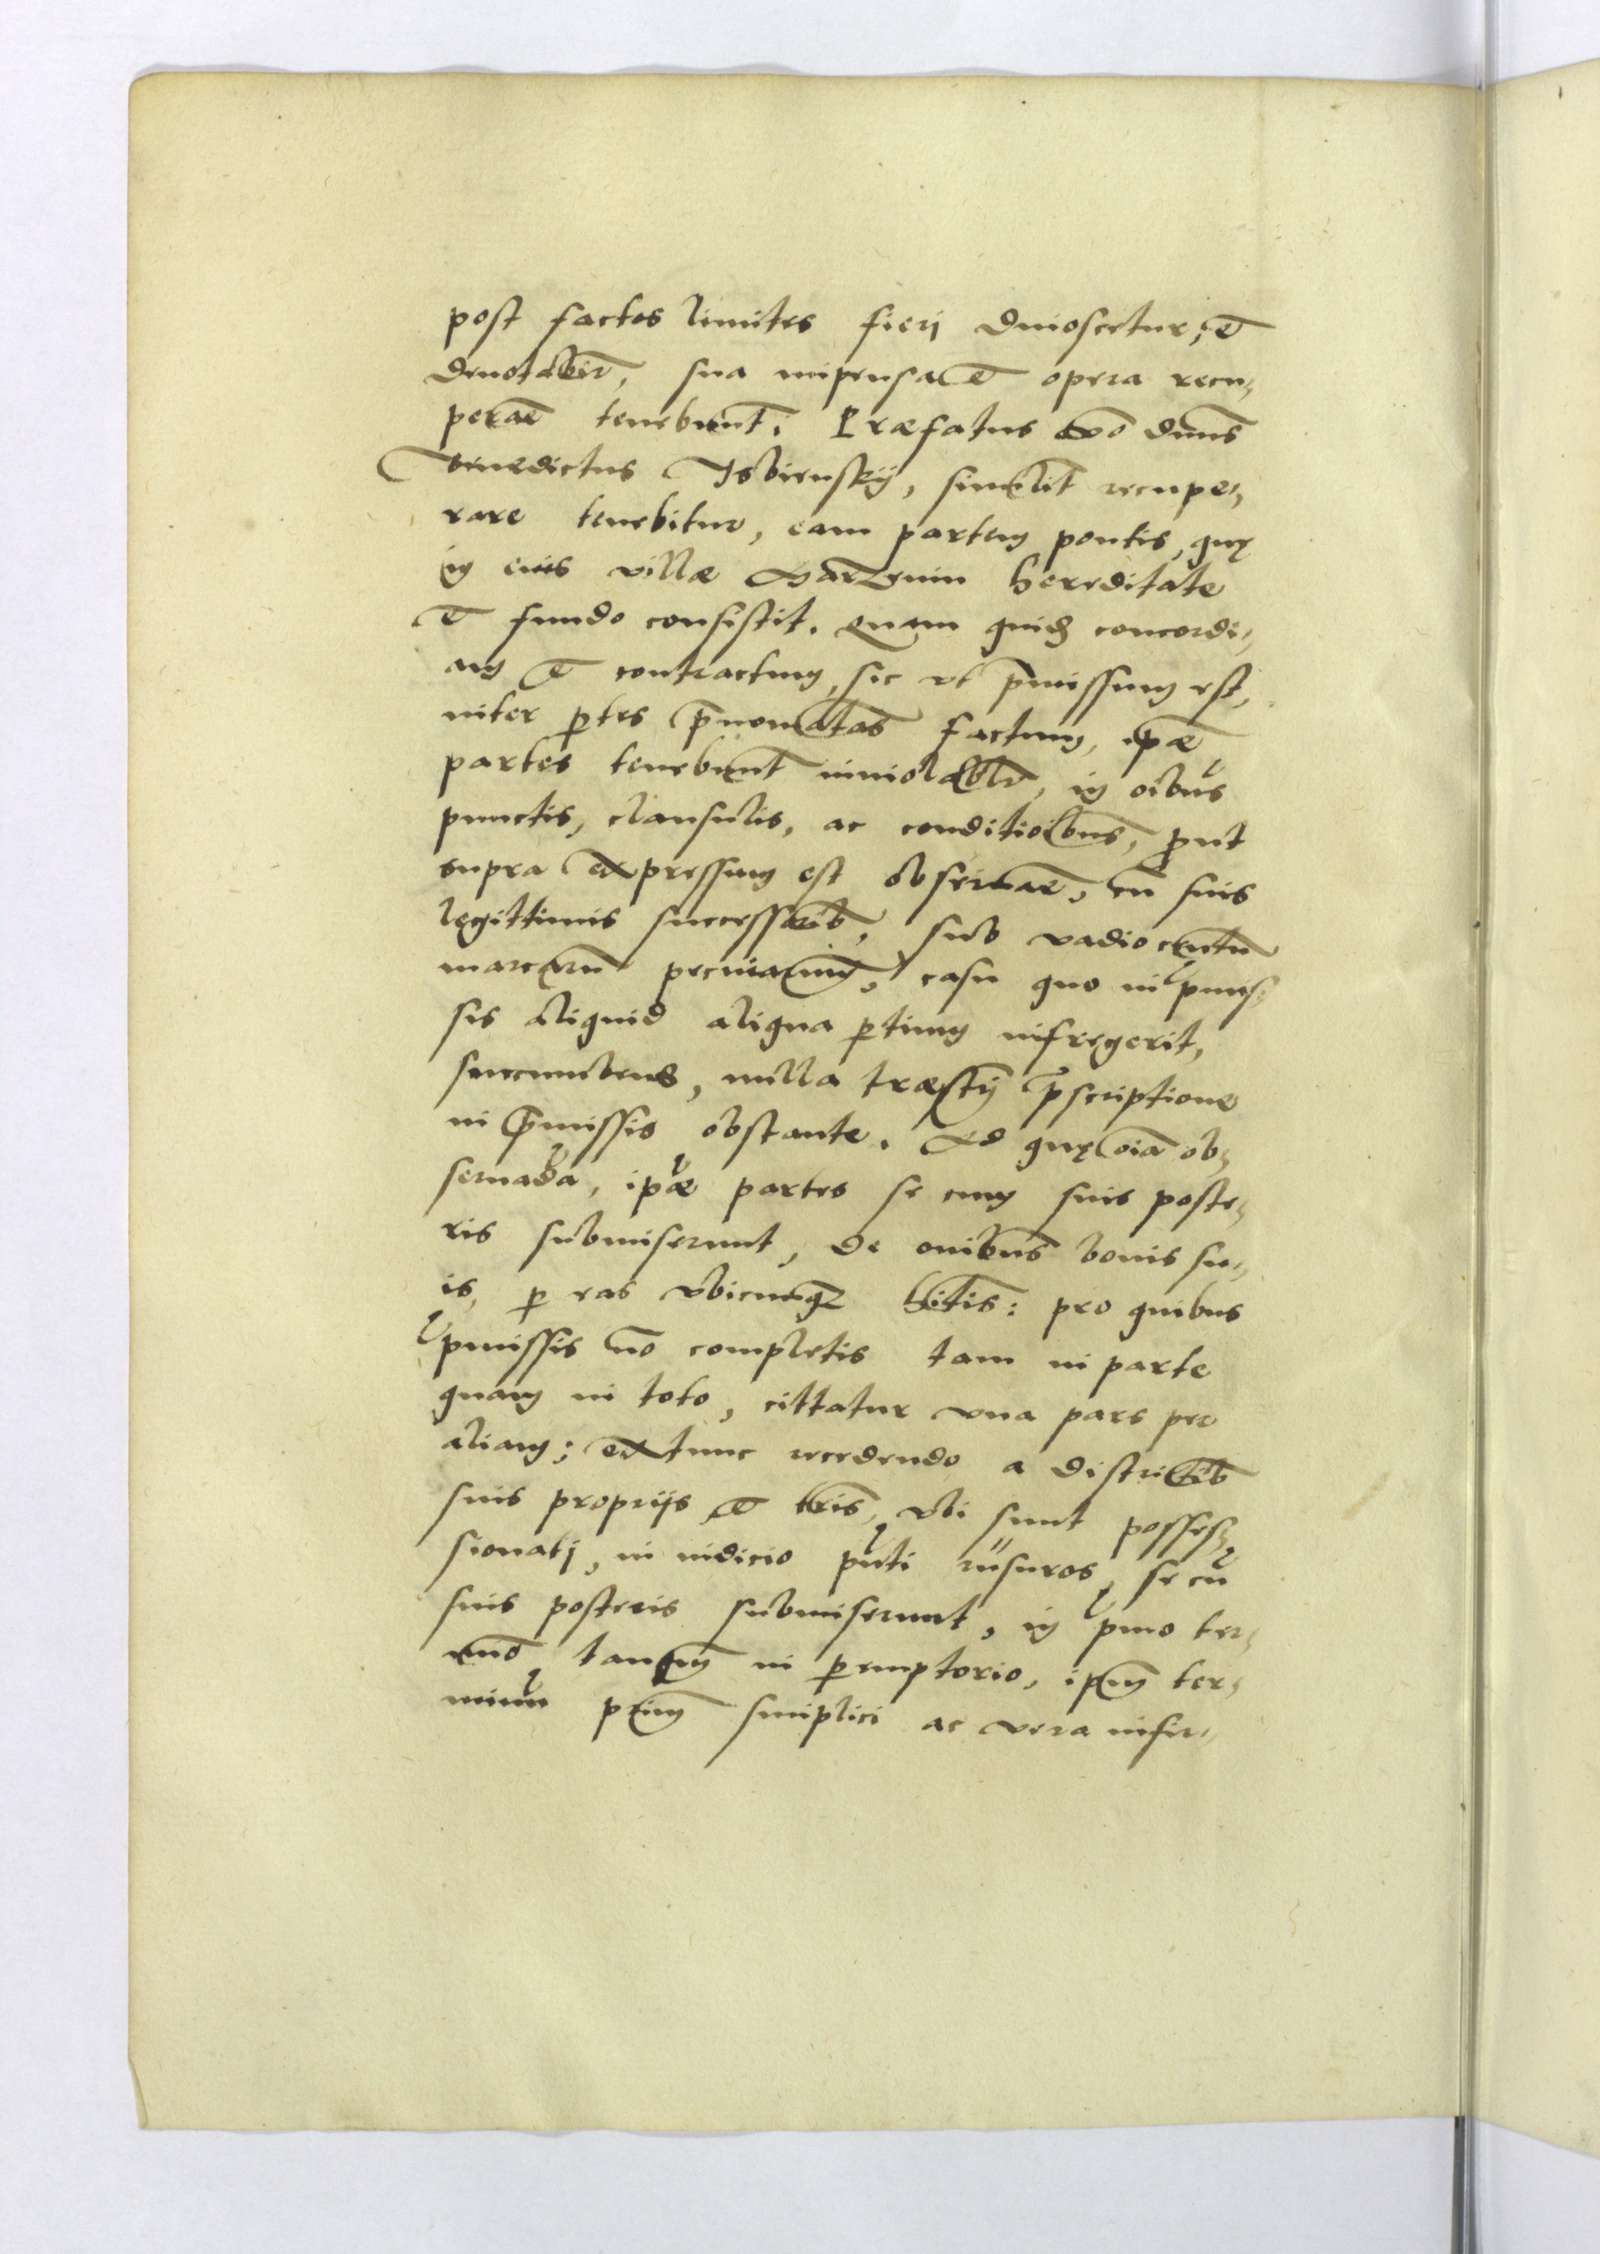 post factos limites fierj dinoscetur, et
denotabitr, sua impensa et opera recu,,
perare tenebunt. Præfatus vo dnus
Benedictus Isbiensky, similit recupe,,
rare tenebitur, eam partem pontis, quę
in eius villæ hereditate
et fundo consistit. Quam quid concordi,,
am et contractum, sic vt pmissum est,
inter ptes pnominatas factum, ipæ
partes tenebunt inuiolablr, in oibus
punctis, clausulis, ac conditioibus, prout
supra expressum est obseruare, cu suis
legittimis successorib, sub vadio centu
marcaru pecuniarum, casu quo in pmis,,
sis aliquid aliqua ptium infregerit,
succumbens, nulla træstrj pscriptione
in pmissis obstante. Ad quę oia ob,,
seruada, ipæ partes se cum suis poste,,
ris submiserunt, de omibus bonis su,,
is, p eas vbicunqz hitis: pro quibus
pmissis no completis tam in parte
quam in toto, cittatur vna pars per
aliam; ex tunc recedendo a districtib
suis proprijs et tris, vbi sunt posses,,
sionatj, in iudicio pnti rusuros, se cu
suis posteris submiserunt, in pmo ter,,
mino tanqm in pemptorio, ipm ter,,
minu primum simplici ac vera infir,,